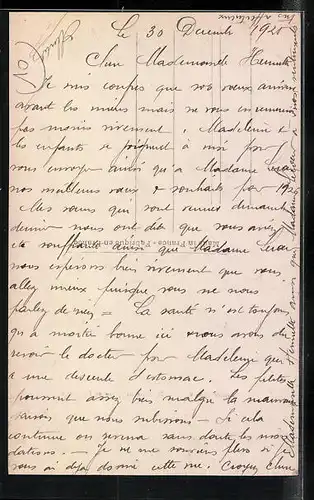 Le 30 Decembre 1925
Chère Mademoiselle Henriette
Je suis confus que vos vœux arrivent
avant les miens mais ne vous en remercie
pas moins vivement. Madeleine et
les enfants se joignent à moi pour
vous envoyer ainsi qu'à Madame
nos meilleurs vœux & souhaits pour 1926
Mes sœurs qui sont venues dimanche
dernier nous ont dit que vous aviez
été souffrante ainsi que Madame
nous espérons bien vivement que vous
allez mieux puisque vous ne nous
parlez de rien = La santé n'est toujours
qu'à moitié bonne ici nous avons dû
revoir le docteur pour Madeleine qui
a une descente d'estomac. Les petites
poussent assez bien malgré la mauvaise
saison que nous subissons - Si cela
continue on verra sans doute les inon
dations. - Je ne me souviens plus si je
vous ai déjà donné cette vue. Croyez Chère
Mademoiselle Henriette ainsi que Madame
Made in France - Fabriqué en France